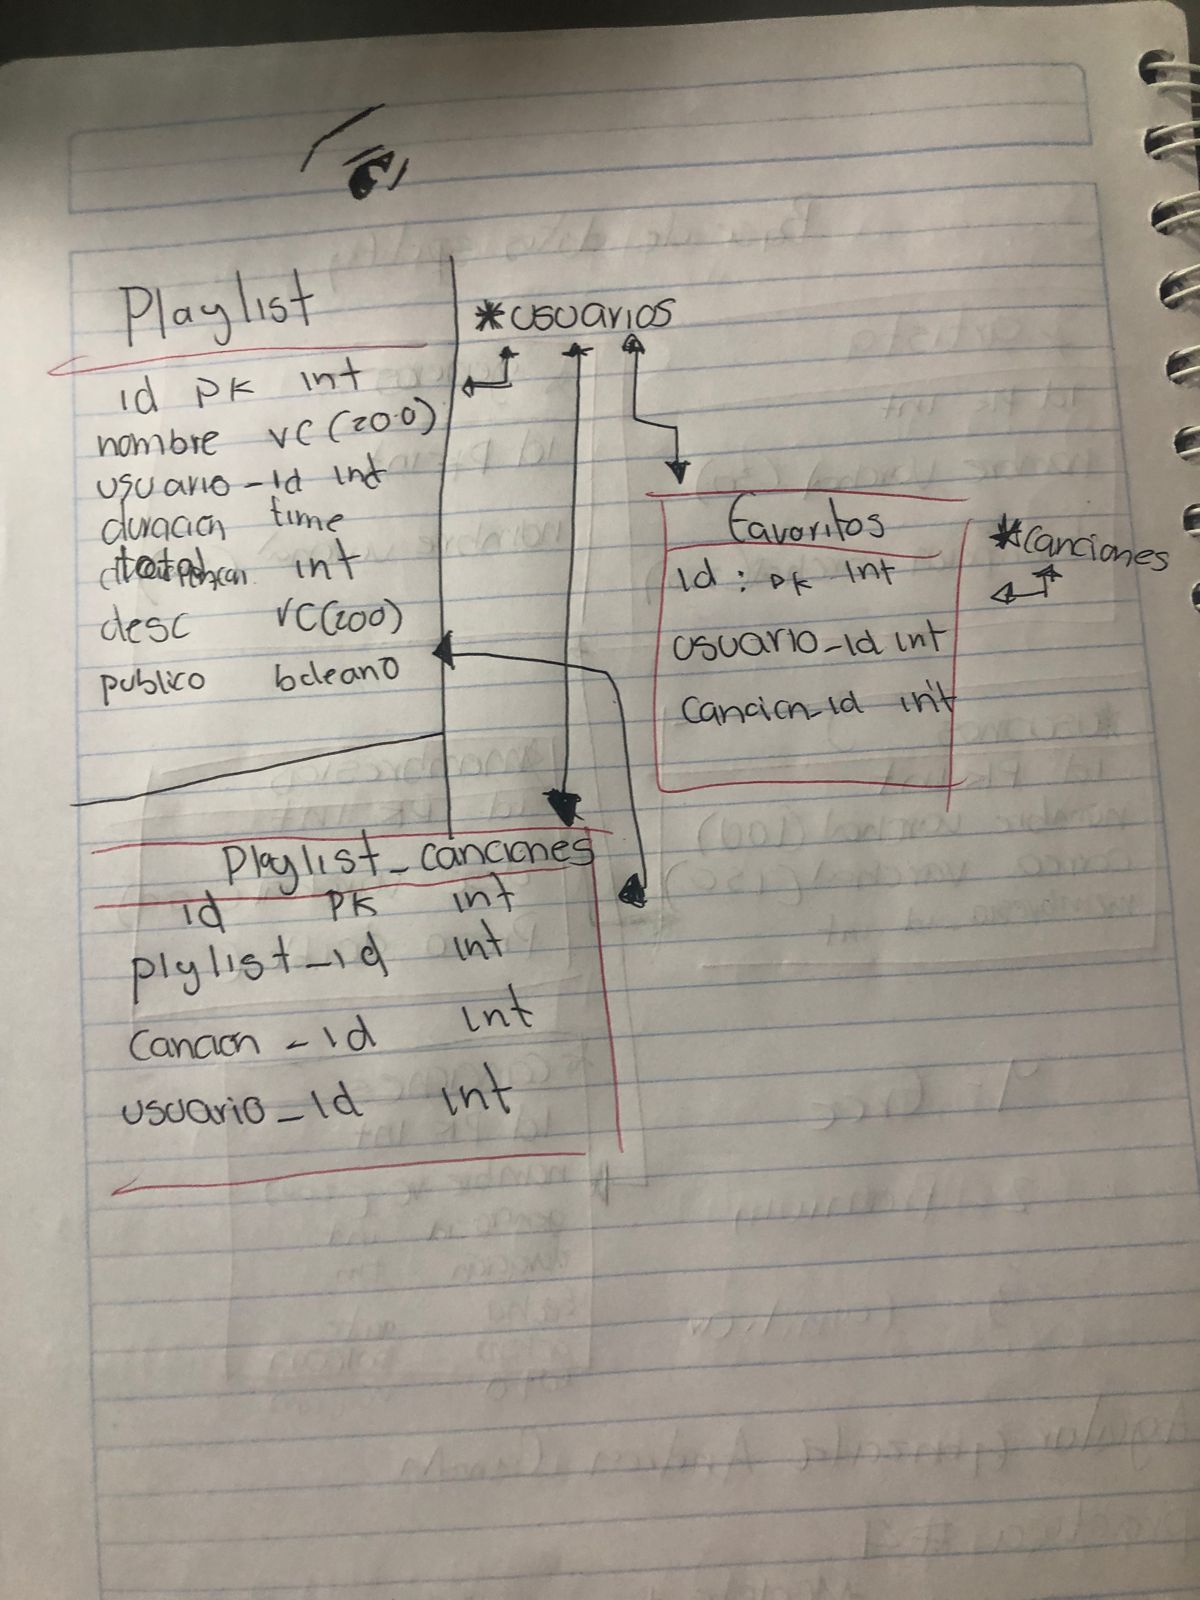 Playlist
id PK int
nombre VC (200)
usuario_id int
duracion time
total int
desc VC(200)
publico boleano
*usuarios
favoritos
id : PK int
usuario_id int
Cancion_id int
*canciones
Playlist_canciones
id PK int
plylist_id int
Cancion_id int
usuario_id int